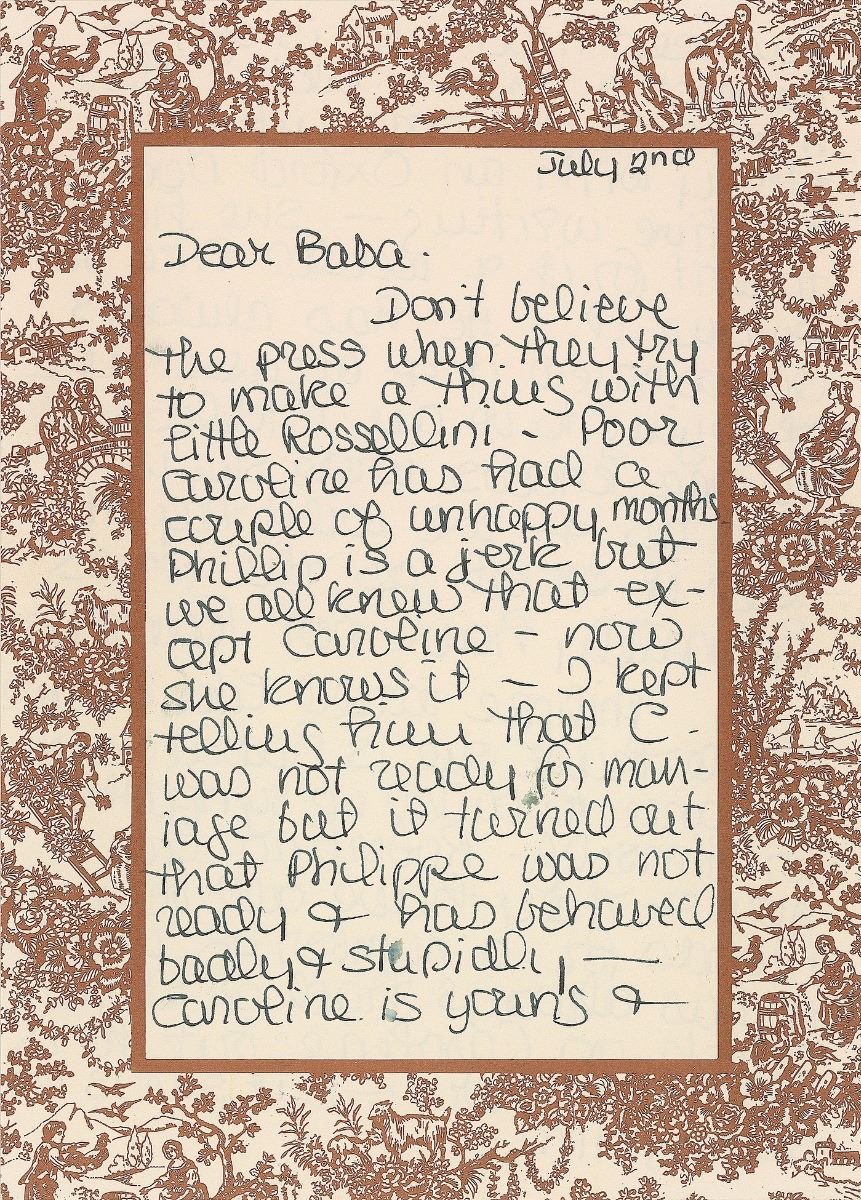 July 2nd
Dear Baba.
Don't believe
the press when they try
to make a thing with
little Rossellini - Poor
Caroline has had a
couple of unhappy months
Phillip is a jerk but
we all knew that ex-
cept Caroline - now
she knows it - I kept
telling him that C-
was not ready for marr-
iage but it turned out
that Philippe was not
ready & has behaved
badly & stupidly —
Caroline is young &